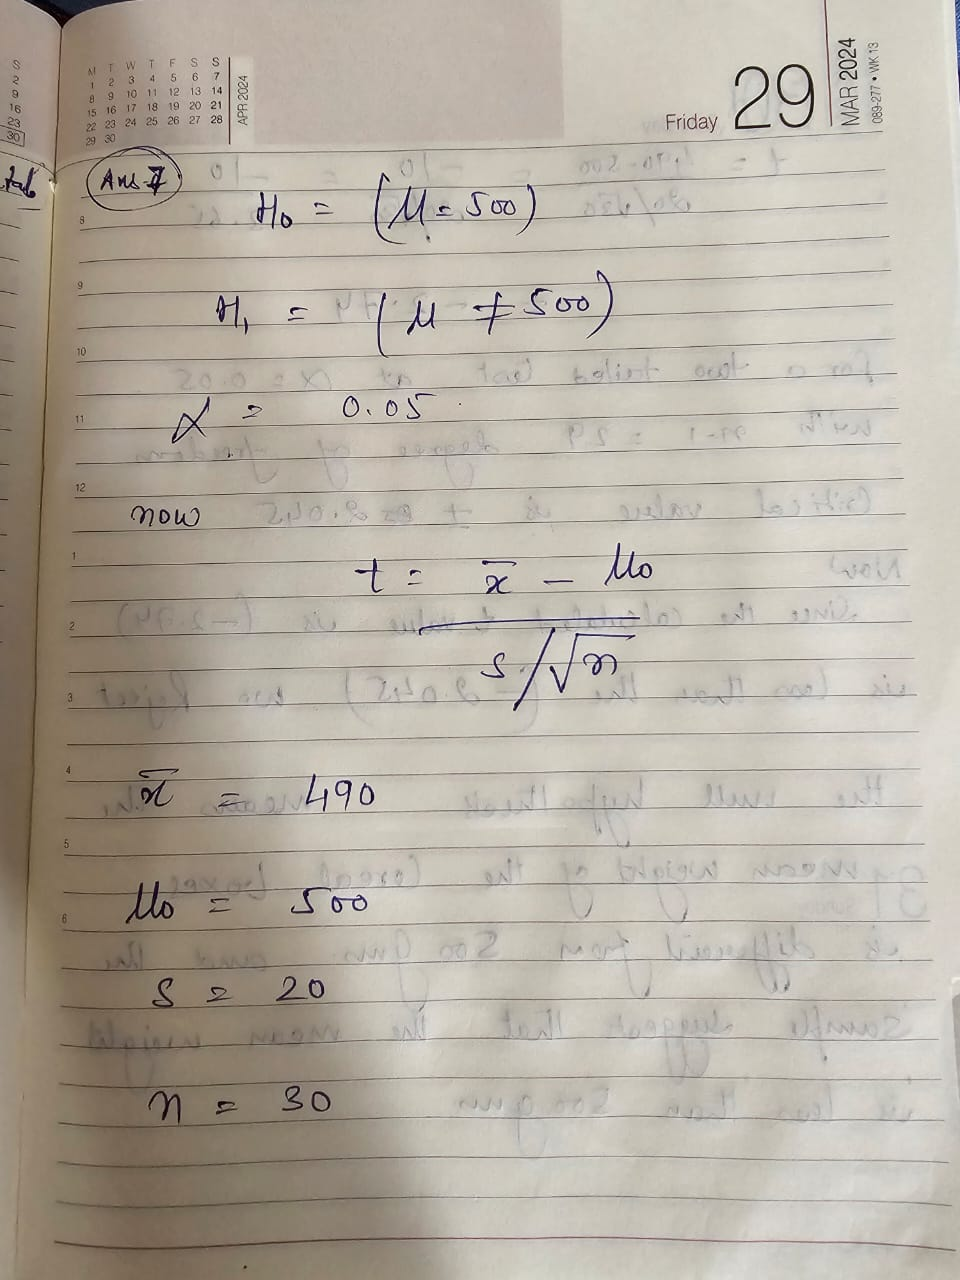 S
2
9
16
23
30
M T W T F S S
1 2 3 4 5 6 7
8 9 10 11 12 13 14
15 16 17 18 19 20 21
22 23 24 25 26 27 28
29 30
APR 2024
Friday 29
MAR 2024
089-277 • WK 13
Ans 7
8
H₀ = (μ = 500)
9
H₁ = (μ ≠ 500)
10
11
α = 0.05
12
now
1
t = x̄ - μ₀
2
s/√n
3
4
x̄ = 490
5
6
μ₀ = 500
s = 20
n = 30